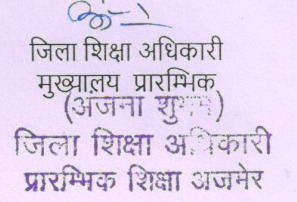 जिला शिक्षा अधिकारी
मुख्यालय प्रारम्भिक
(अजना
जिला शिक्षा अधिकारी
प्रारम्भिक शिक्षा अजमेर